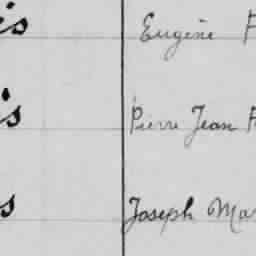 is Eugène F
is Pierre Jean F
s Joseph Mar